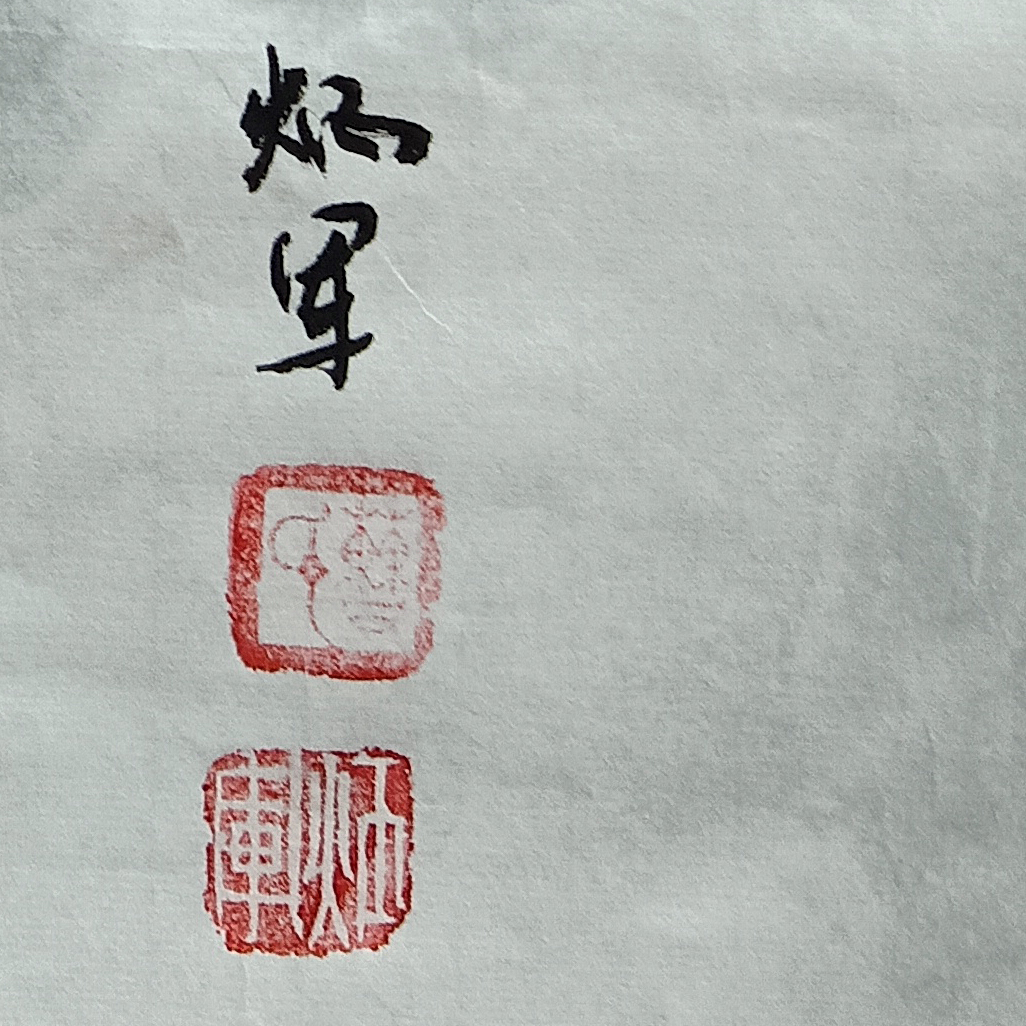 炳
军
炳軍